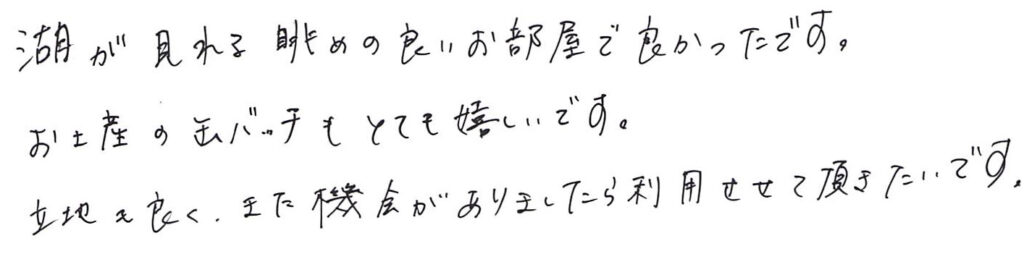 湖が見れる眺めの良いお部屋で良かったです。
お土産の缶バッチもとても嬉しいです。
立地も良く、また機会がありましたら利用させて頂きたいです。